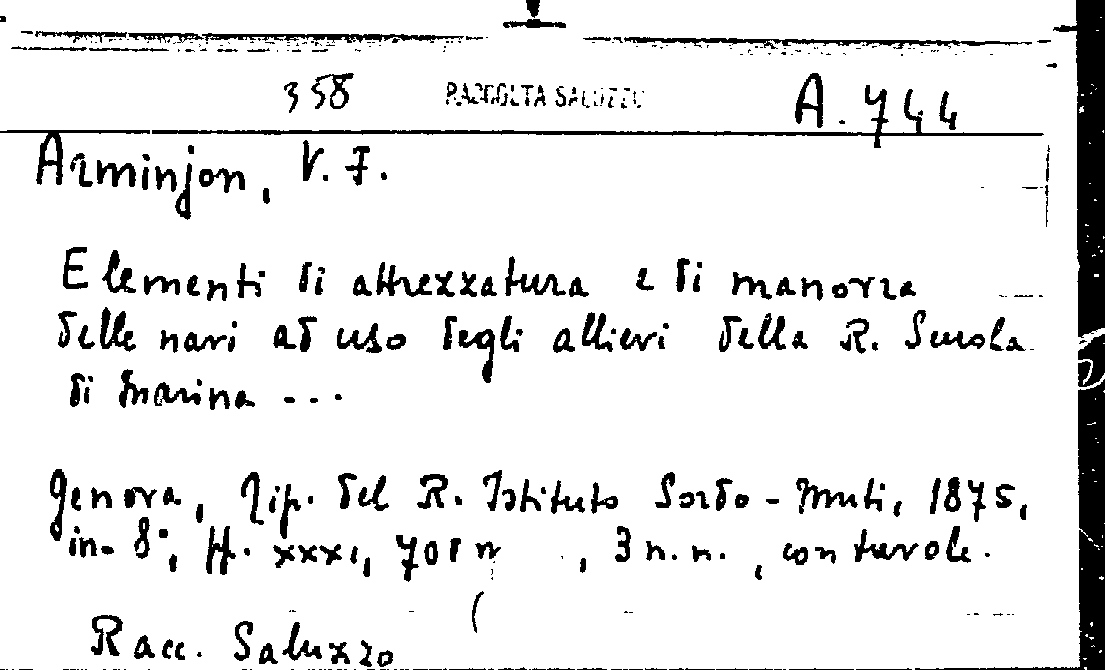 358 RACCOLTA SALUZZO A.744
Arminjon, V. F.
Elementi di attrezzatura e di manovra
delle navi ad uso degli allievi della R. Scuola
di Marina ...
Genova, Tip. del R. Istituto Sordo-Muti, 1875,
in-8°, pp. XXXI, 708 , 3 n.n., con tavole.
Racc. Saluzzo